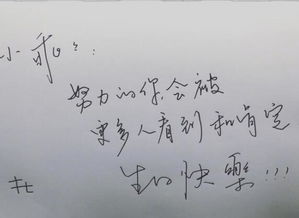 小乖：
努力的你，会被
更多人看到和肯定
生日快樂!!!